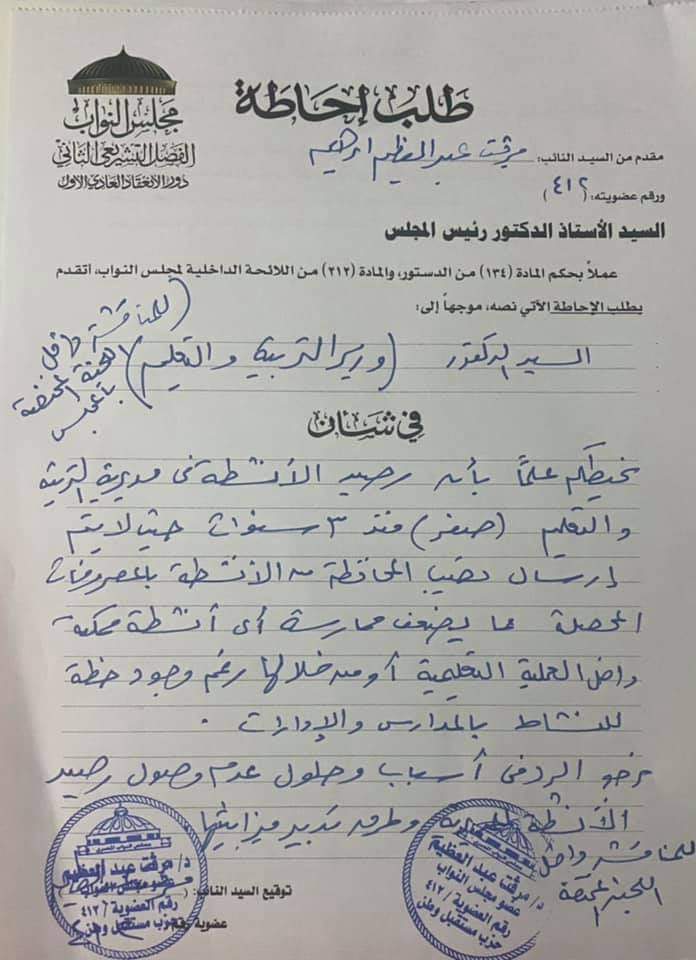 مجلس النواب
الفصل التشريعى الثانى
دور الانعقاد العادى الأول
طلب إحاطة
مقدم من السيد النائب: ميرفت عبد العظيم ابراهيم
ورقم عضويته: (٤١٢)
السيد الأستاذ الدكتور رئيس المجلس
عملاً بحكم المادة (١٣٤) من الدستور، والمادة (٢١٢) من اللائحة الداخلية لمجلس النواب، أتقدم
بطلب الإحاطة الآتي نصه، موجهاً إلى:
السيد الدكتور (وزير التربية والتعليم)
للمناقشة داخل
اللجنة المختصة
بالمجلس
في شأن
نحيطكم علماً بأن رصيد الأنشطة فى مديرية التربية
والتعليم (صفر) منذ ٣ سنوات حيث لا يتم
إرسال نصيب المحافظة من الأنشطة بالمصروفات
المحصلة مما يضعف ممارسة أى أنشطة ممكنة
داخل العملية التعليمية أو من خلالها رغم وجود خطة
للنشاط بالمدارس والإدارات .
نرجو الرد فى أسباب وحلول عدم وصول رصيد
الأنشطة للمديرية وطرق تدبير ميزانيتها
للمناقشة داخل
اللجنة المختصة
توقيع السيد النائب:
عضوية رقم
د/ مرفت عبد العظيم
عضو مجلس النواب
رقم العضوية / ٤١٢
حزب مستقبل وطن
د/ مرفت عبد العظيم
عضو مجلس النواب
رقم العضوية / ٤١٢
حزب مستقبل وطن